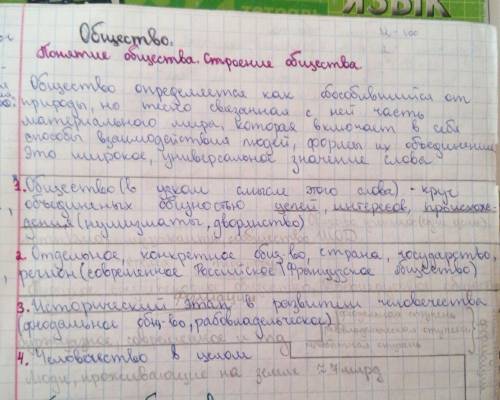 ЯЗЫК
Общество.
Понятие общества. Строение общества.
Общество определяется как обособившийся от
природы, но тесно связанная с ней часть
материального мира, которая включает в себя
способы взаимодействия людей, формы их объединения
Это широкое, универсальное значение слова
1. Общество (в узком смысле этого слова) - круг
объединенных общностью целей, интересов, происхож-
дения (нумизматы, дворянство)
2. Отдельное, конкретное общ-во, страна, государство,
регион (современное Российское, Французское общество)
3. Исторический этап в развитии человечества
(феодальное общ-во, рабовладельческое)
4. Человечество в целом
люди, проживающие на земле ≈ 7 млрд